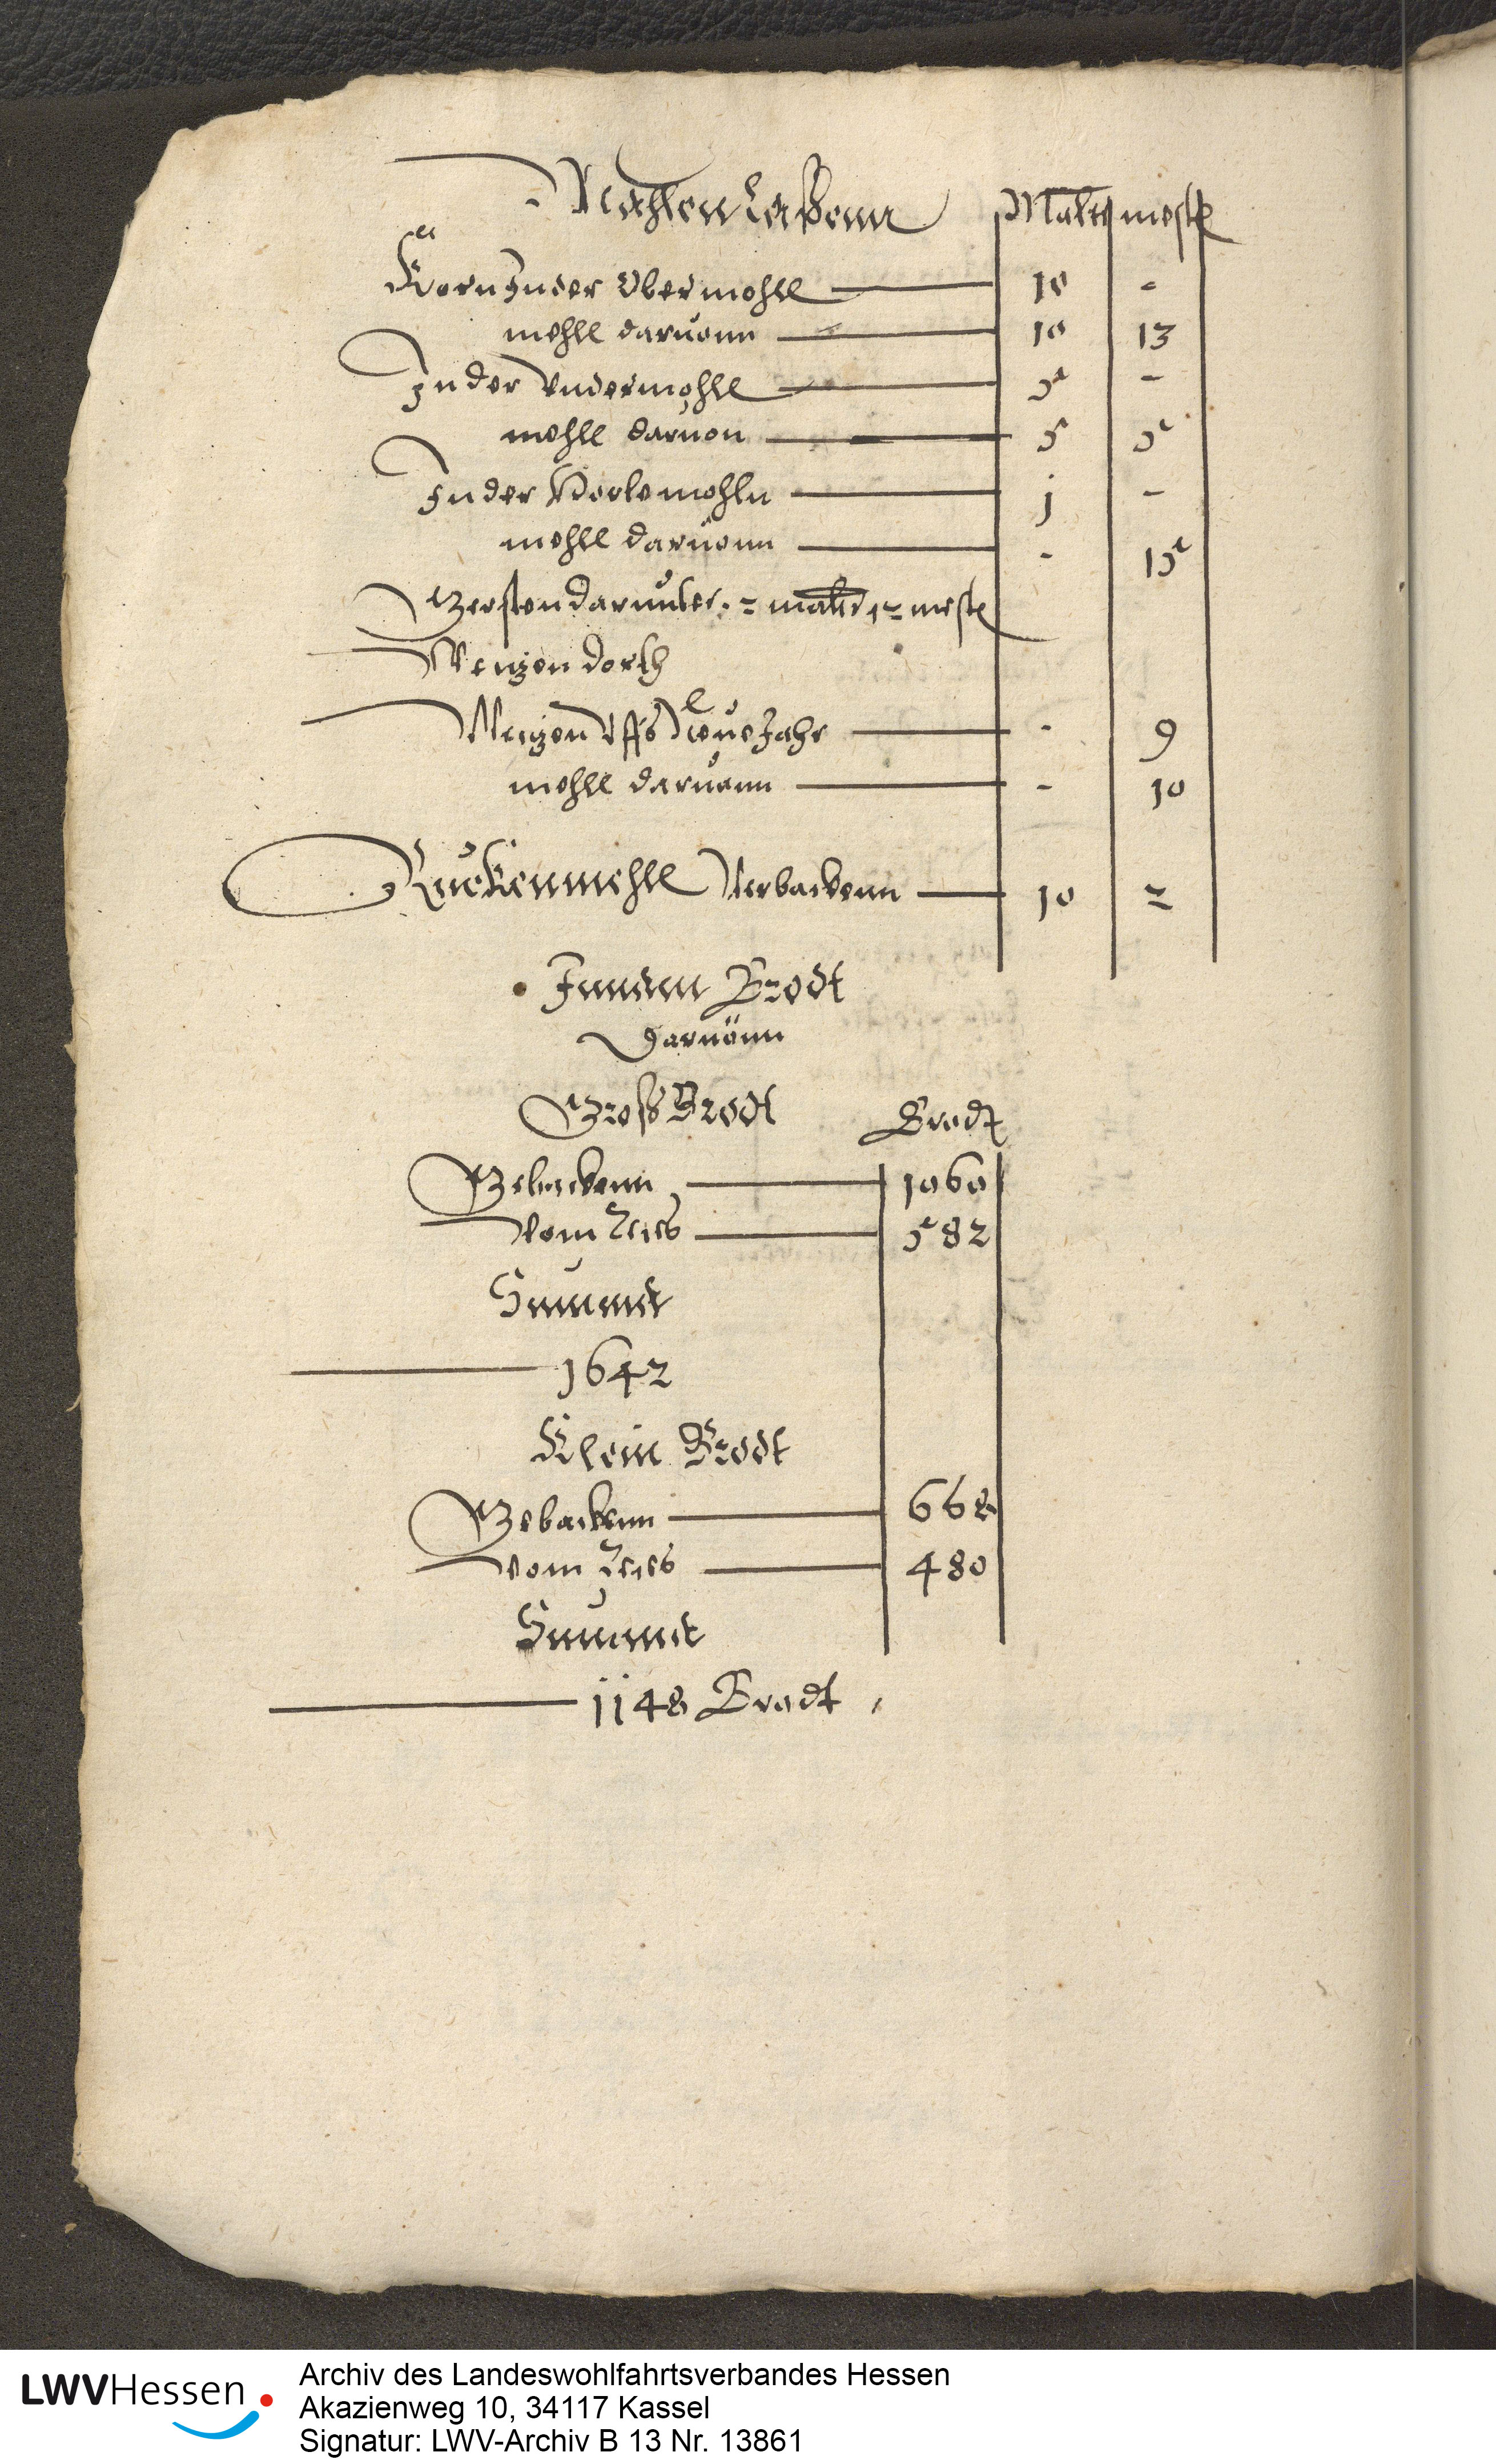 Mahlen Laßenn Malter meste
Korn Inder Obermohll 10 -
mehll daruonn 10 13
In der Undermohll 5 -
mehll daruon 5 5
In der Werbemohln j -
mehll daruonn - 15
Gersten darunter = malter 12 meste
Weitzen dorch
Weitzen Uffs Neue Jahr - 9
mehll daruonn - 10
Ruckenmehll Verbackenn 10 2
Innam Brodt
Daruonn
Groß Brodt Brodt
Gebackenn 1060
Vom Rest 582
Summa
1642
Klein Brodt
Gebackenn 668
Vom Rest 480
Summa
1148 Brodt
LWVHessen
Archiv des Landeswohlfahrtsverbandes Hessen
Akazienweg 10, 34117 Kassel
Signatur: LWV-Archiv B 13 Nr. 13861